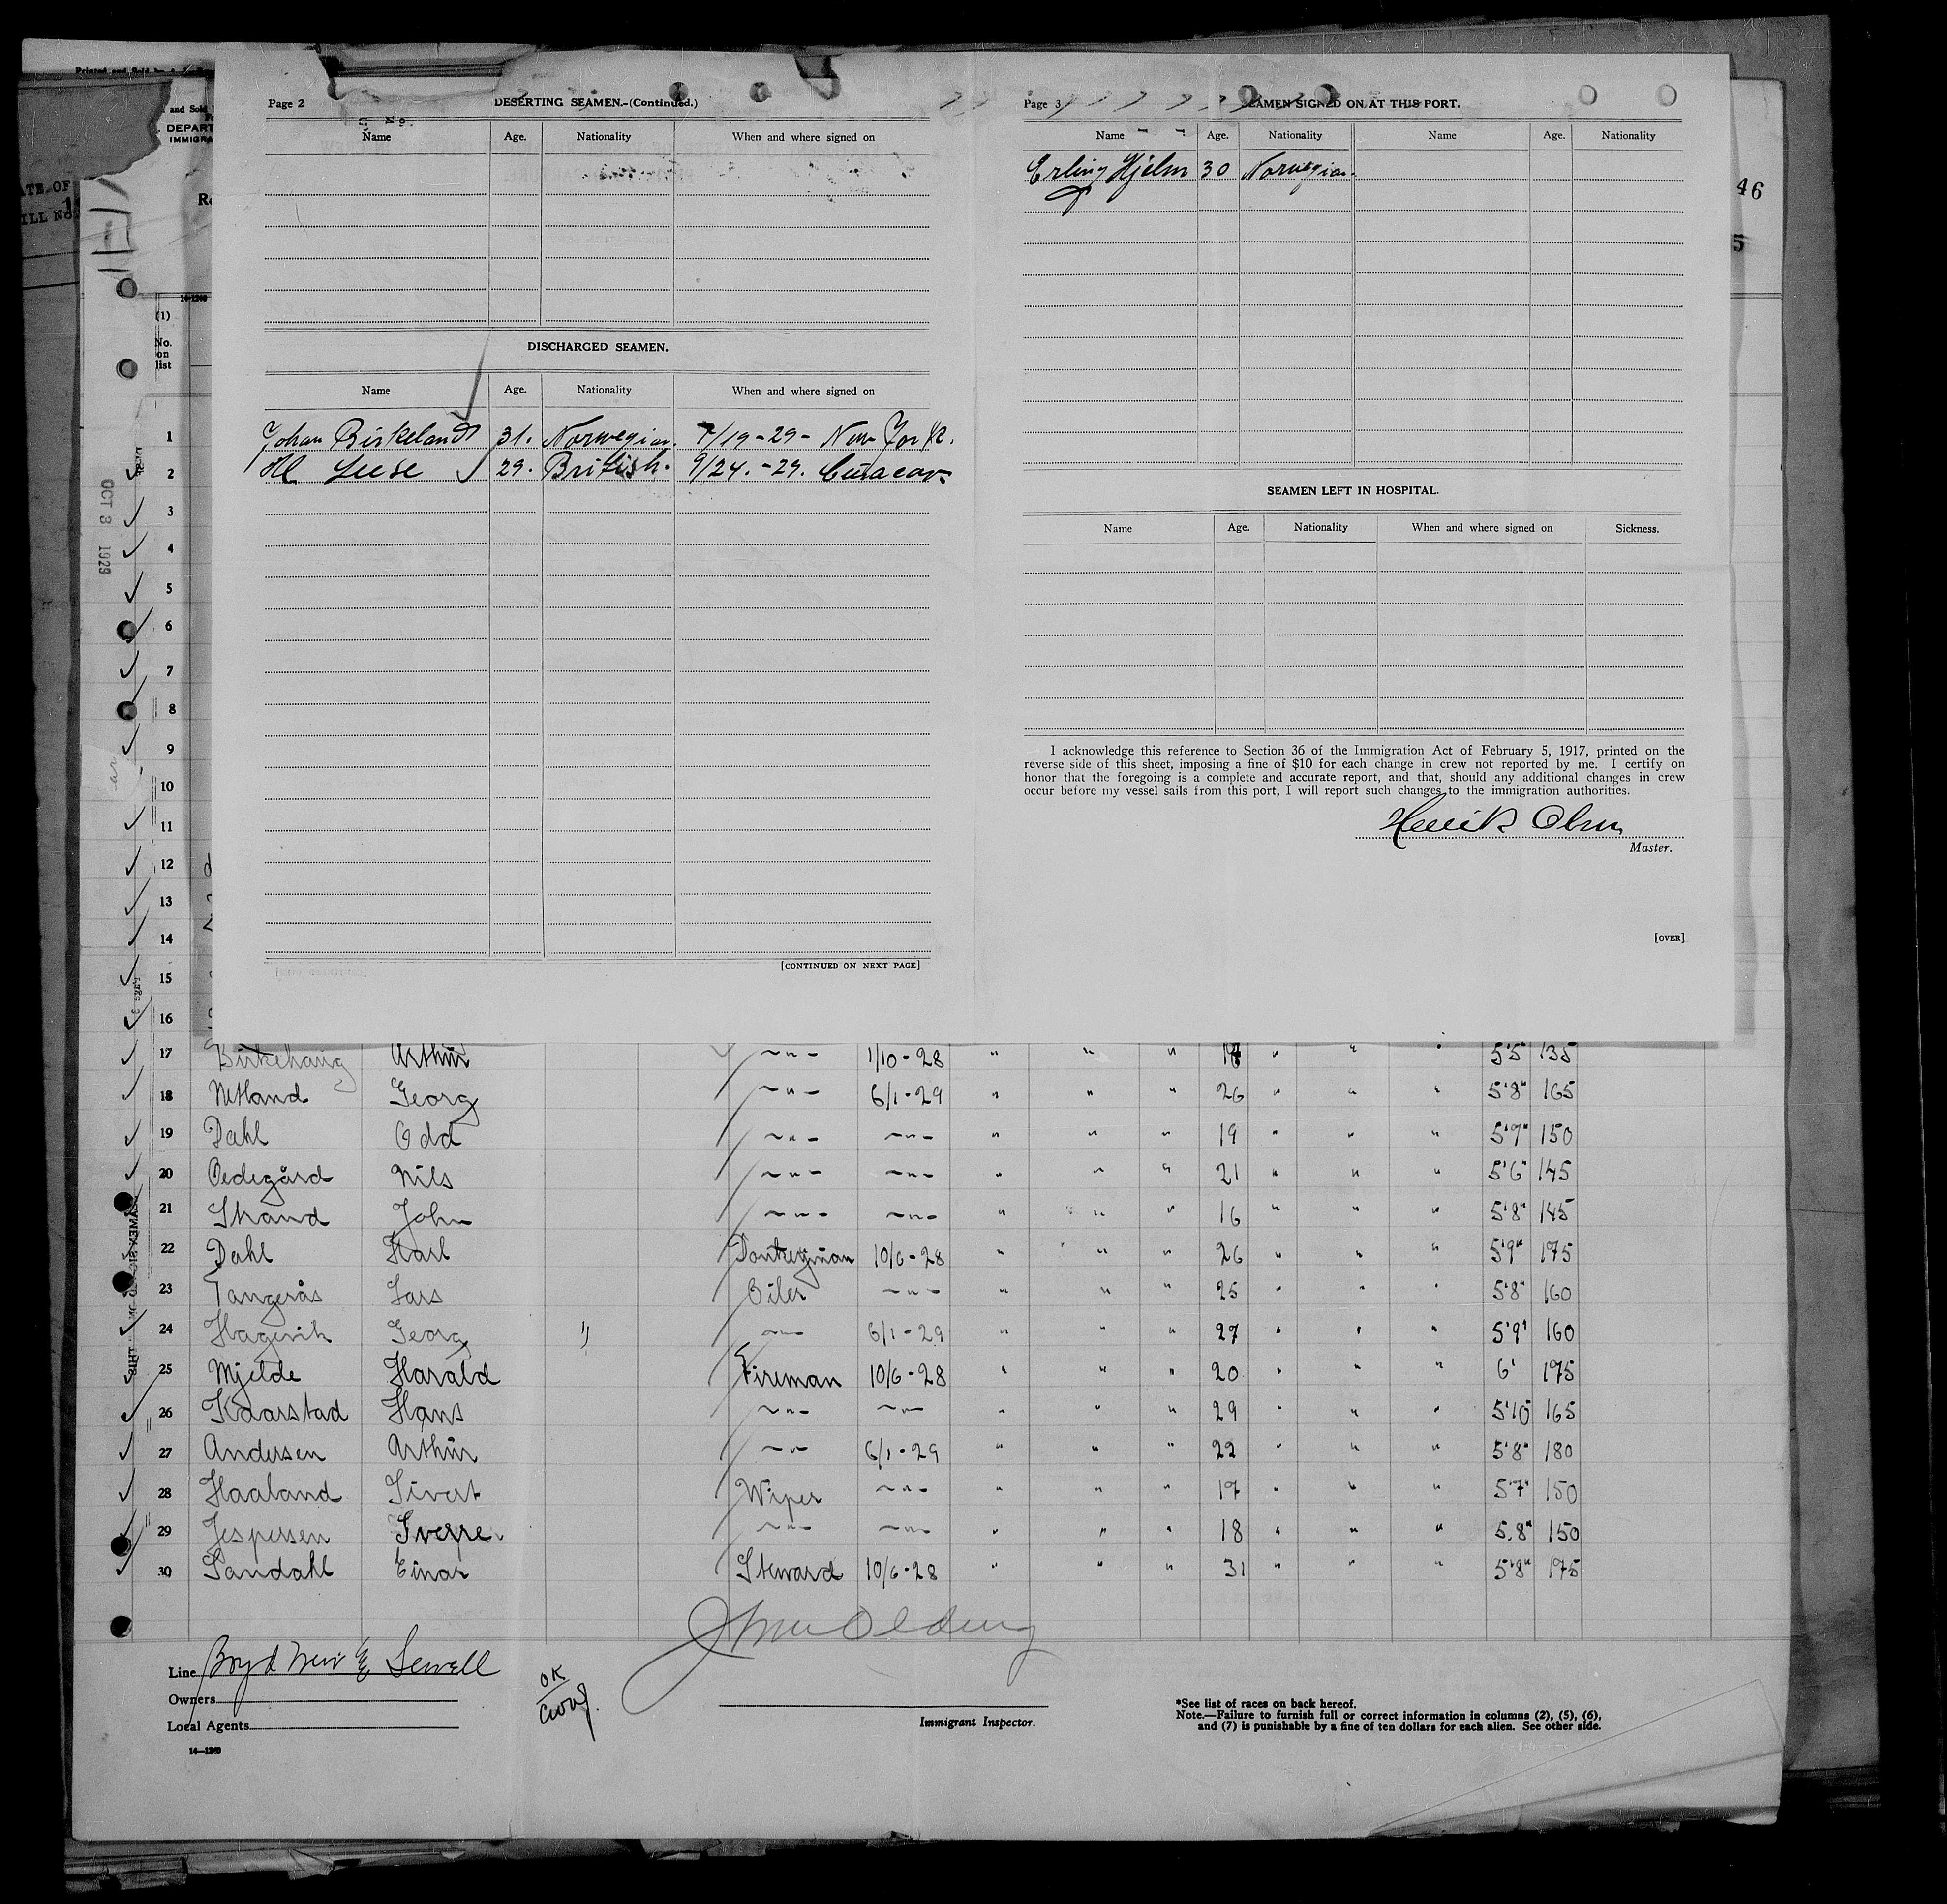 Page 2 DESERTING SEAMEN.-(Continued.)
Name Age. Nationality When and where signed on
DISCHARGED SEAMEN.
Name Age. Nationality When and where signed on
Johan Birkeland 31. Norwegian. 7/19-29- New York.
Leese 29. British. 9/24.-29. Curacao
[CONTINUED ON NEXT PAGE]
Page 3 SEAMEN SIGNED ON AT THIS PORT.
Name Age. Nationality Name Age. Nationality
Erling Hjelm 30 Norwegian.
SEAMEN LEFT IN HOSPITAL.
Name Age. Nationality When and where signed on Sickness.
I acknowledge this reference to Section 36 of the Immigration Act of February 5, 1917, printed on the
reverse side of this sheet, imposing a fine of $10 for each change in crew not reported by me. I certify on
honor that the foregoing is a complete and accurate report, and that, should any additional changes in crew
occur before my vessel sails from this port, I will report such changes to the immigration authorities.
Henrik Olsen
Master.
[OVER]
46
5
DEPART
IMMIGRA
(1)
No.
on
list
OCT 3 1929
1
2
3
4
5
6
7
8
9
10
11
12
13
14
15
16
17 Birkehaug Arthur -"- 1/10-28 " " " " " " 5'5" 135
18 Netland Georg -"- 6/1-29 " " " 26 " " " 5'8" 165
19 Dahl Odd -"- -"- " " " 19 " " " 5'7" 150
20 Oedegård Nils -"- -"- " " " 21 " " " 5'6" 145
21 Strand John -"- -"- " " " 16 " " " 5'8" 145
22 Dahl Karl Donkeyman 10/6-28 " " " 26 " " " 5'9" 175
23 Tangerås Lars Oiler -"- " " " 25 " " " 5'8" 160
24 Hagevik Georg " -"- 6/1-29 " " " 27 " " " 5'9" 160
25 Mjelde Harald Fireman 10/6-28 " " " 20 " " " 6' 175
26 Kaarstad Hans -"- -"- " " " 29 " " " 5'10 165
27 Andersen Arthur -"- 6/1-29 " " " 22 " " " 5'8" 180
28 Haaland Sivert Wiper -"- " " " 17 " " " 5'7" 150
29 Jespersen Sverre -"- -"- " " " 18 " " " 5.8" 150
30 Sandahl Einar Steward 10/6-28 " " " 31 " " " 5'8" 175
Line Boyd Weir & Sewell
OK
Owners
Local Agents
Immigrant Inspector.
14—1240
*See list of races on back hereof.
Note.—Failure to furnish full or correct information in columns (2), (5), (6),
and (7) is punishable by a fine of ten dollars for each alien. See other side.